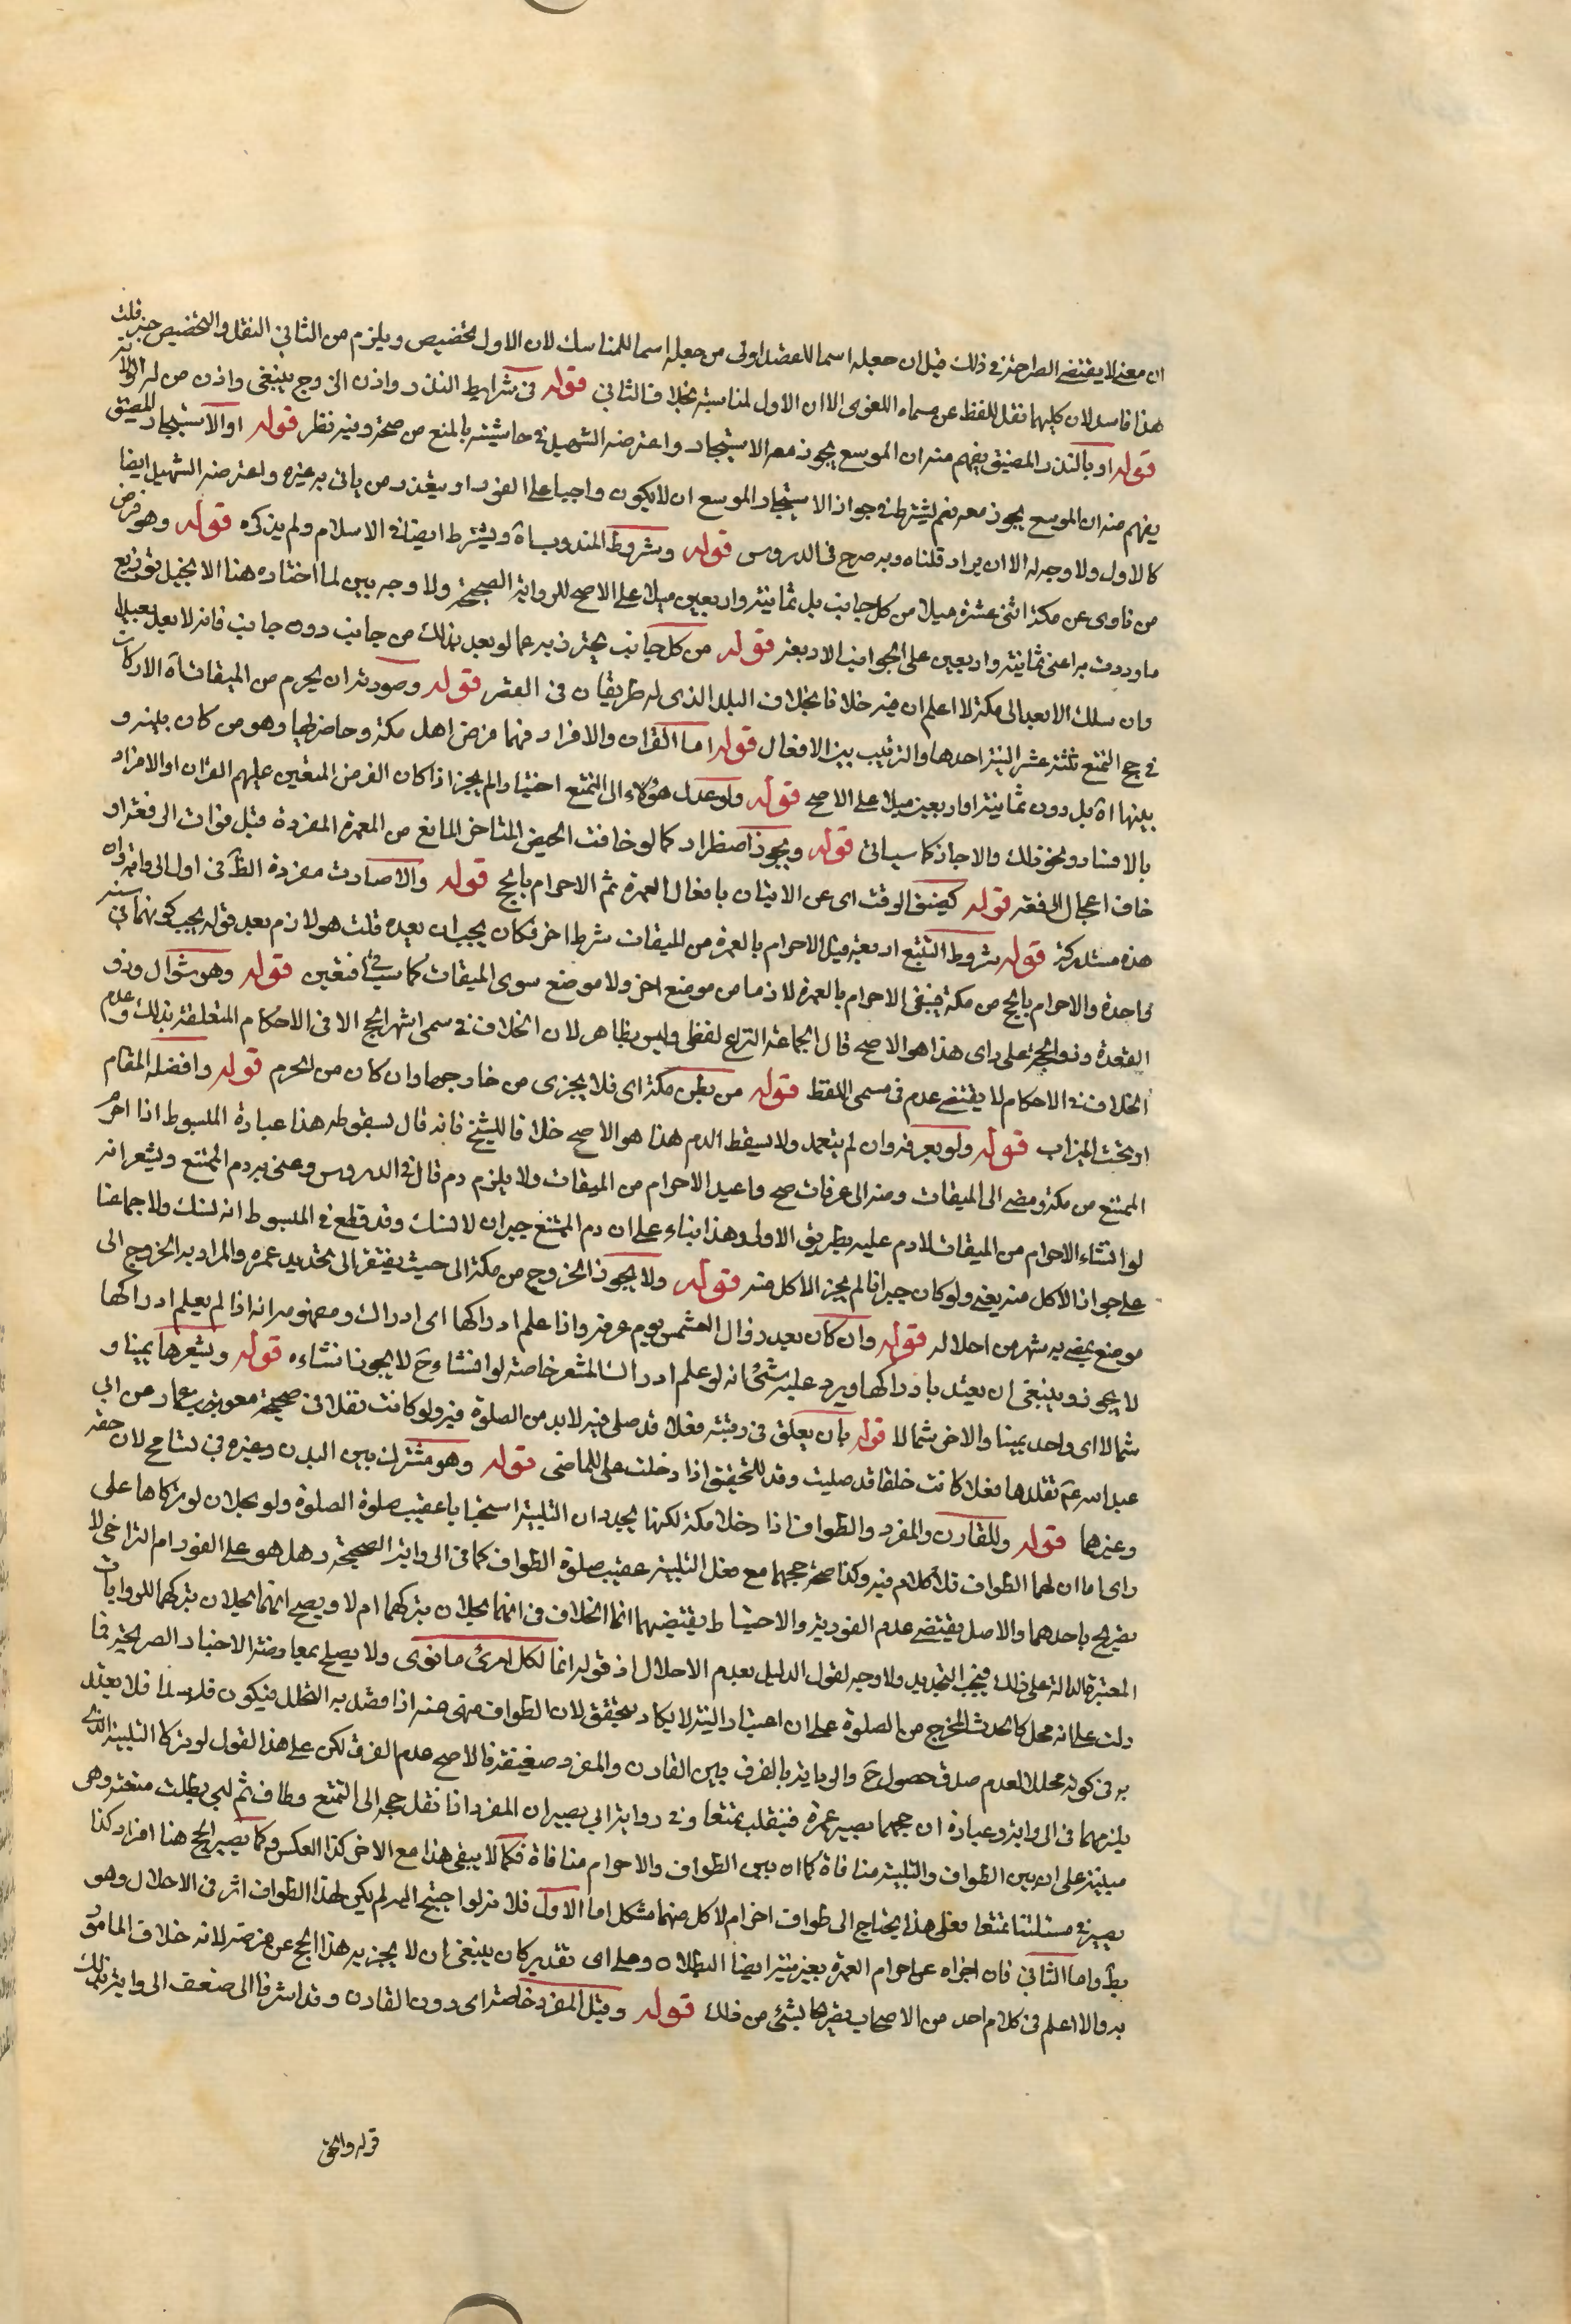 ان معنى لا يقتضى الصراحة في ذلك قيل ان جعله اسما للقصد اولى من جعله اسما للمناسك لان الاول تخصيص ويلزم من الثاني النقل والتخصيص خير قلت
هذا فاسد لان كليهما نقل للفظ عن مسماه اللغوى الا ان الاول لمناسبة بخلاف الثاني قوله في شرايط النذر واذن الزوج ينبغى واذن من له الولاية
قوله او بالنذر المضيق يفهم منه ان الموسع يجوز معه الاستيجار واعترضه الشهيد في حاشيته بالمنع من صحته وفيه نظر قوله او الاستيجار المضيق
يفهم منه ان الموسع يجوز معه نعم يشترط في جواز الاستيجار الموسع ان لا يكون واجبا على الفور او يتعذر من ياتى به غيره واعترضه الشهيد ايضا
كالاول ولا وجه له الا ان يراد قلناه وبه صرح فى الدروس قوله وشروط المندوب اه ويشترط ايضا في الاسلام ولم يذكره قوله وهو فرض
من ناوى عن مكة اثنى عشرة ميلا من كل جانب بل ثمانية واربعين ميلا على الاصح للرواية الصحيحة ولا وجه بين لما اختاره هنا الا تخيل توزيع
ما وردت به اعنى ثمانية واربعين على الجوانب الاربعة قوله من كل جانب يحترز به عما لو بعد بذلك من جانب دون جانب فانه لا يعد بعيدا
وان سلك الابعد الى مكة لا اعلم ان فيه خلافا بخلاف البلد الذى له طريقان في القصر قوله وصورته ان يحرم من الميقات اه الاركان
في حج التمتع ثلثة عشر النية احدها والترتيب بين الافعال قوله اما القران والافراد فهما فرض اهل مكة وحاضريها وهو من كان بينه و
بينها اه بل دون ثمانية واربعين ميلا على الاصح قوله ولو عدل هؤلاء الى التمتع اختيارا لم يجز اذا كان الفرض المتعين عليهم القران او الافراد
بالافساد ونحو ذلك والا جاز كما سياتى قوله ويجوز اضطرارا كما لو خافت الحيض المتاخر المانع من العمرة المفردة قبل فوات الرفقة او
خاف اعجال الرفقة قوله كضيق الوقت اى عن الاتيان بافعال العمرة ثم الاحرام بالحج قوله والا صارت مفردة الظ في اول الرواية وان
هذه مستدركة قوله شروط التمتع اربعة قيل الاحرام بالعمرة من الميقات شرط اخر فكان يجب ان يعده قلت هو لازم بعد قوله يجب كونهما في سنة
واحدة والاحرام بالحج من مكة فيبقى الاحرام بالعمرة لازما من موضع اخر ولا موضع سوى الميقات كما سيجئ فتعين قوله وهو شوال وذو
القعدة وذو الحجة على راى هذا هو الاصح قال الجماعة النزاع لفظى وليس بظاهر لان الخلاف في مسمى اشهر الحج لا في الاحكام المتعلقة بذلك وعدم
الخلاف في الاحكام لا يقتضى عدمه فى مسمى اللفظ قوله من بطن مكة اى فلا يجزى من خارجها وان كان من الحرم قوله وافضله المقام
او تحت الميزاب قوله ولو بعرفة وان لم يتعمد ولا يسقط الدم هذا هو الاصح خلافا للشيخ فانه قال بسقوطه هذا عبارة المبسوط اذا احرم
المتمتع من مكة ومضى الى الميقات ومنه الى عرفات صح واعيد الاحرام من الميقات ولا يلزم دم قال في الدروس وعنى به دم المتمتع ويشعر انه
لو انشاء الاحرام من الميقات لا دم عليه بطريق الاولى وهذا بناء على ان دم المتمتع جبران لا نسك وقد قطع في المبسوط انه نسك ولاجماعنا
على جواز الاكل منه يعنى ولو كان جبرانا لم يجز الاكل منه قوله ولا يجوز الخروج من مكة الى حيث يفتقر الى تجديد عمرة والمراد به الخروج الى
موضع يمضى به شهر من احلاله قوله وان كان بعد زوال الشمس يوم عرفة واذا علم ادراكها اى ادراك ومفهومه انه اذا لم يعلم ادراكها
لا يجوز وينبغى ان يعتد بادراكها ويرد عليه شئ انه لو علم ادراك المشعر خاصة لو انشاء ح لا يجوز انشاءه قوله ويشعرها يمينا و
شمالا اى واحد يمينا والاخر شمالا قوله بان يعلق في رقبته نعلا قد صلى فيه لا بد من الصلوة فيه ولو كانت نفلا في صحيحة معوية بن عمار عن ابى
عبد الله عم تقلدها نعلا كانت خلقا قد صليت وقد للتحقيق اذا دخلت على الماضى قوله وهو مشترك بين البدن وغيره فى تسامح لان حقه
وغيرها قوله وللقارن والمفرد والطواف اذا دخلا مكة لكنهما يجددان التلبية استحبابا عقيب صلوة الصلوة ولو يحلان لو تركاها على
راى اما ان لهما الطواف فلا كلام فيه وكذا صحة حجهما مع فعل التلبية عقيب صلوة الطواف كما في الرواية الصحيحة وهل هو على الفور ام التراخى لا
تصريح باحدهما والاصل يقتضى عدم الفورية والاحتياط يقتضيهما انما الخلاف في انهما يحلان بتركهما ام لا ويصح انهما يحلان بتركهما للروايات
المعتبرة الدالة على ذلك فيجب التجديد ولا وجه لقول الدليل بعدم الاحلال اذ قوله انما لكل امرئ ما نوى ولا يصلح بمعاوضة الاخبار الصريحة فيما
دلت على انه محل كالحدث المخرج من الصلوة على ان اعتبار النية لا يكاد يتحقق لان الطواف منهى عنه اذا قصد به التحلل فيكون فاسدا فلا يعتد
به فى كونه محللا لعدم صدق حصول ح والرواية بالفرق بين القارن والمفرد ضعيفة فالاصح عدم الفرق لكن على هذا القول لو تركا التلبية الذى
يلزمهما في الرواية وعبارة ان حجهما يصير عمرة فينقلب تمتعا وفي رواية ابى بصير ان المفرد اذا نقل حجه الى التمتع وطاف ثم لبى بطلت متعته وهى
مبينة على ان بين الطواف والتلبية منافاة كما ان بين الطواف والاحرام منافاة فكما لا يبقى هذا مع الاخر كذا العكس وكما يصير الحج هنا افراد كذا
يصير في مسئلتنا تمتعا فعلى هذا يحتاج الى طواف اخر ام لا كل منهما مشكل اما الاول فلانه لو احتيج اليه لم يكن لهذا الطواف اثر فى الاحلال وهو
بط واما الثاني فان اجزاه عن احرام العمرة بغير نية ايضا البطلان وعلى اى تقدير كان ينبغى ان لا يجزيه هذا الحج عن فرضه لانه خلاف المامور
به والا اعلم فى كلام احد من الاصحاب تصريحا بشئ من ذلك قوله وقيل المفرد خاصة اى دون القارن وقد اشرنا الى ضعف الرواية بذلك
قوله والحق